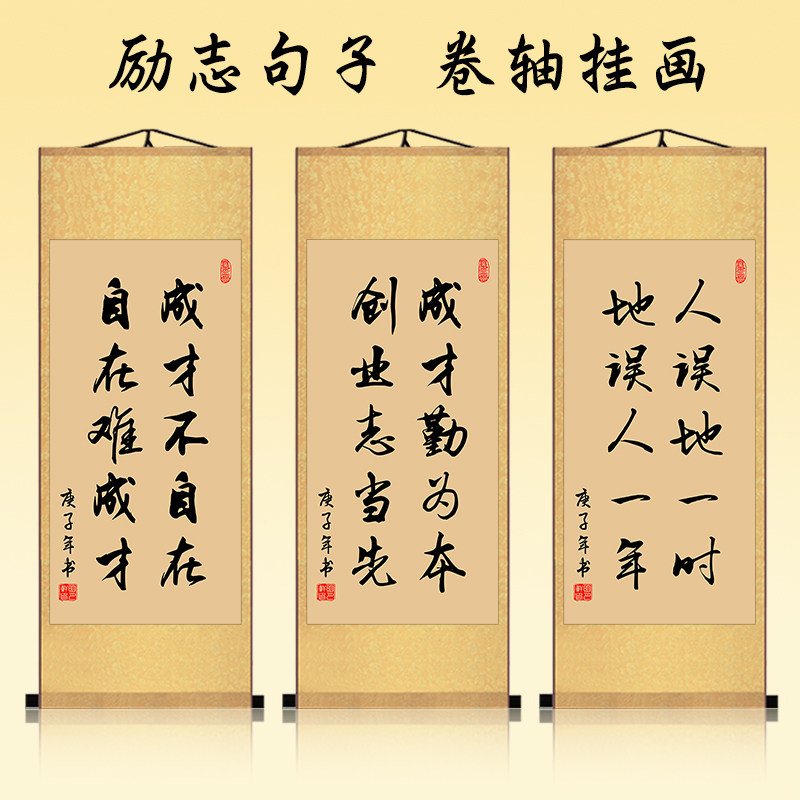 励志句子 卷轴挂画
成才不自在
自在难成才
庚子年书
成才勤为本
创业志当先
庚子年书
人误地一时
地误人一年
庚子年书